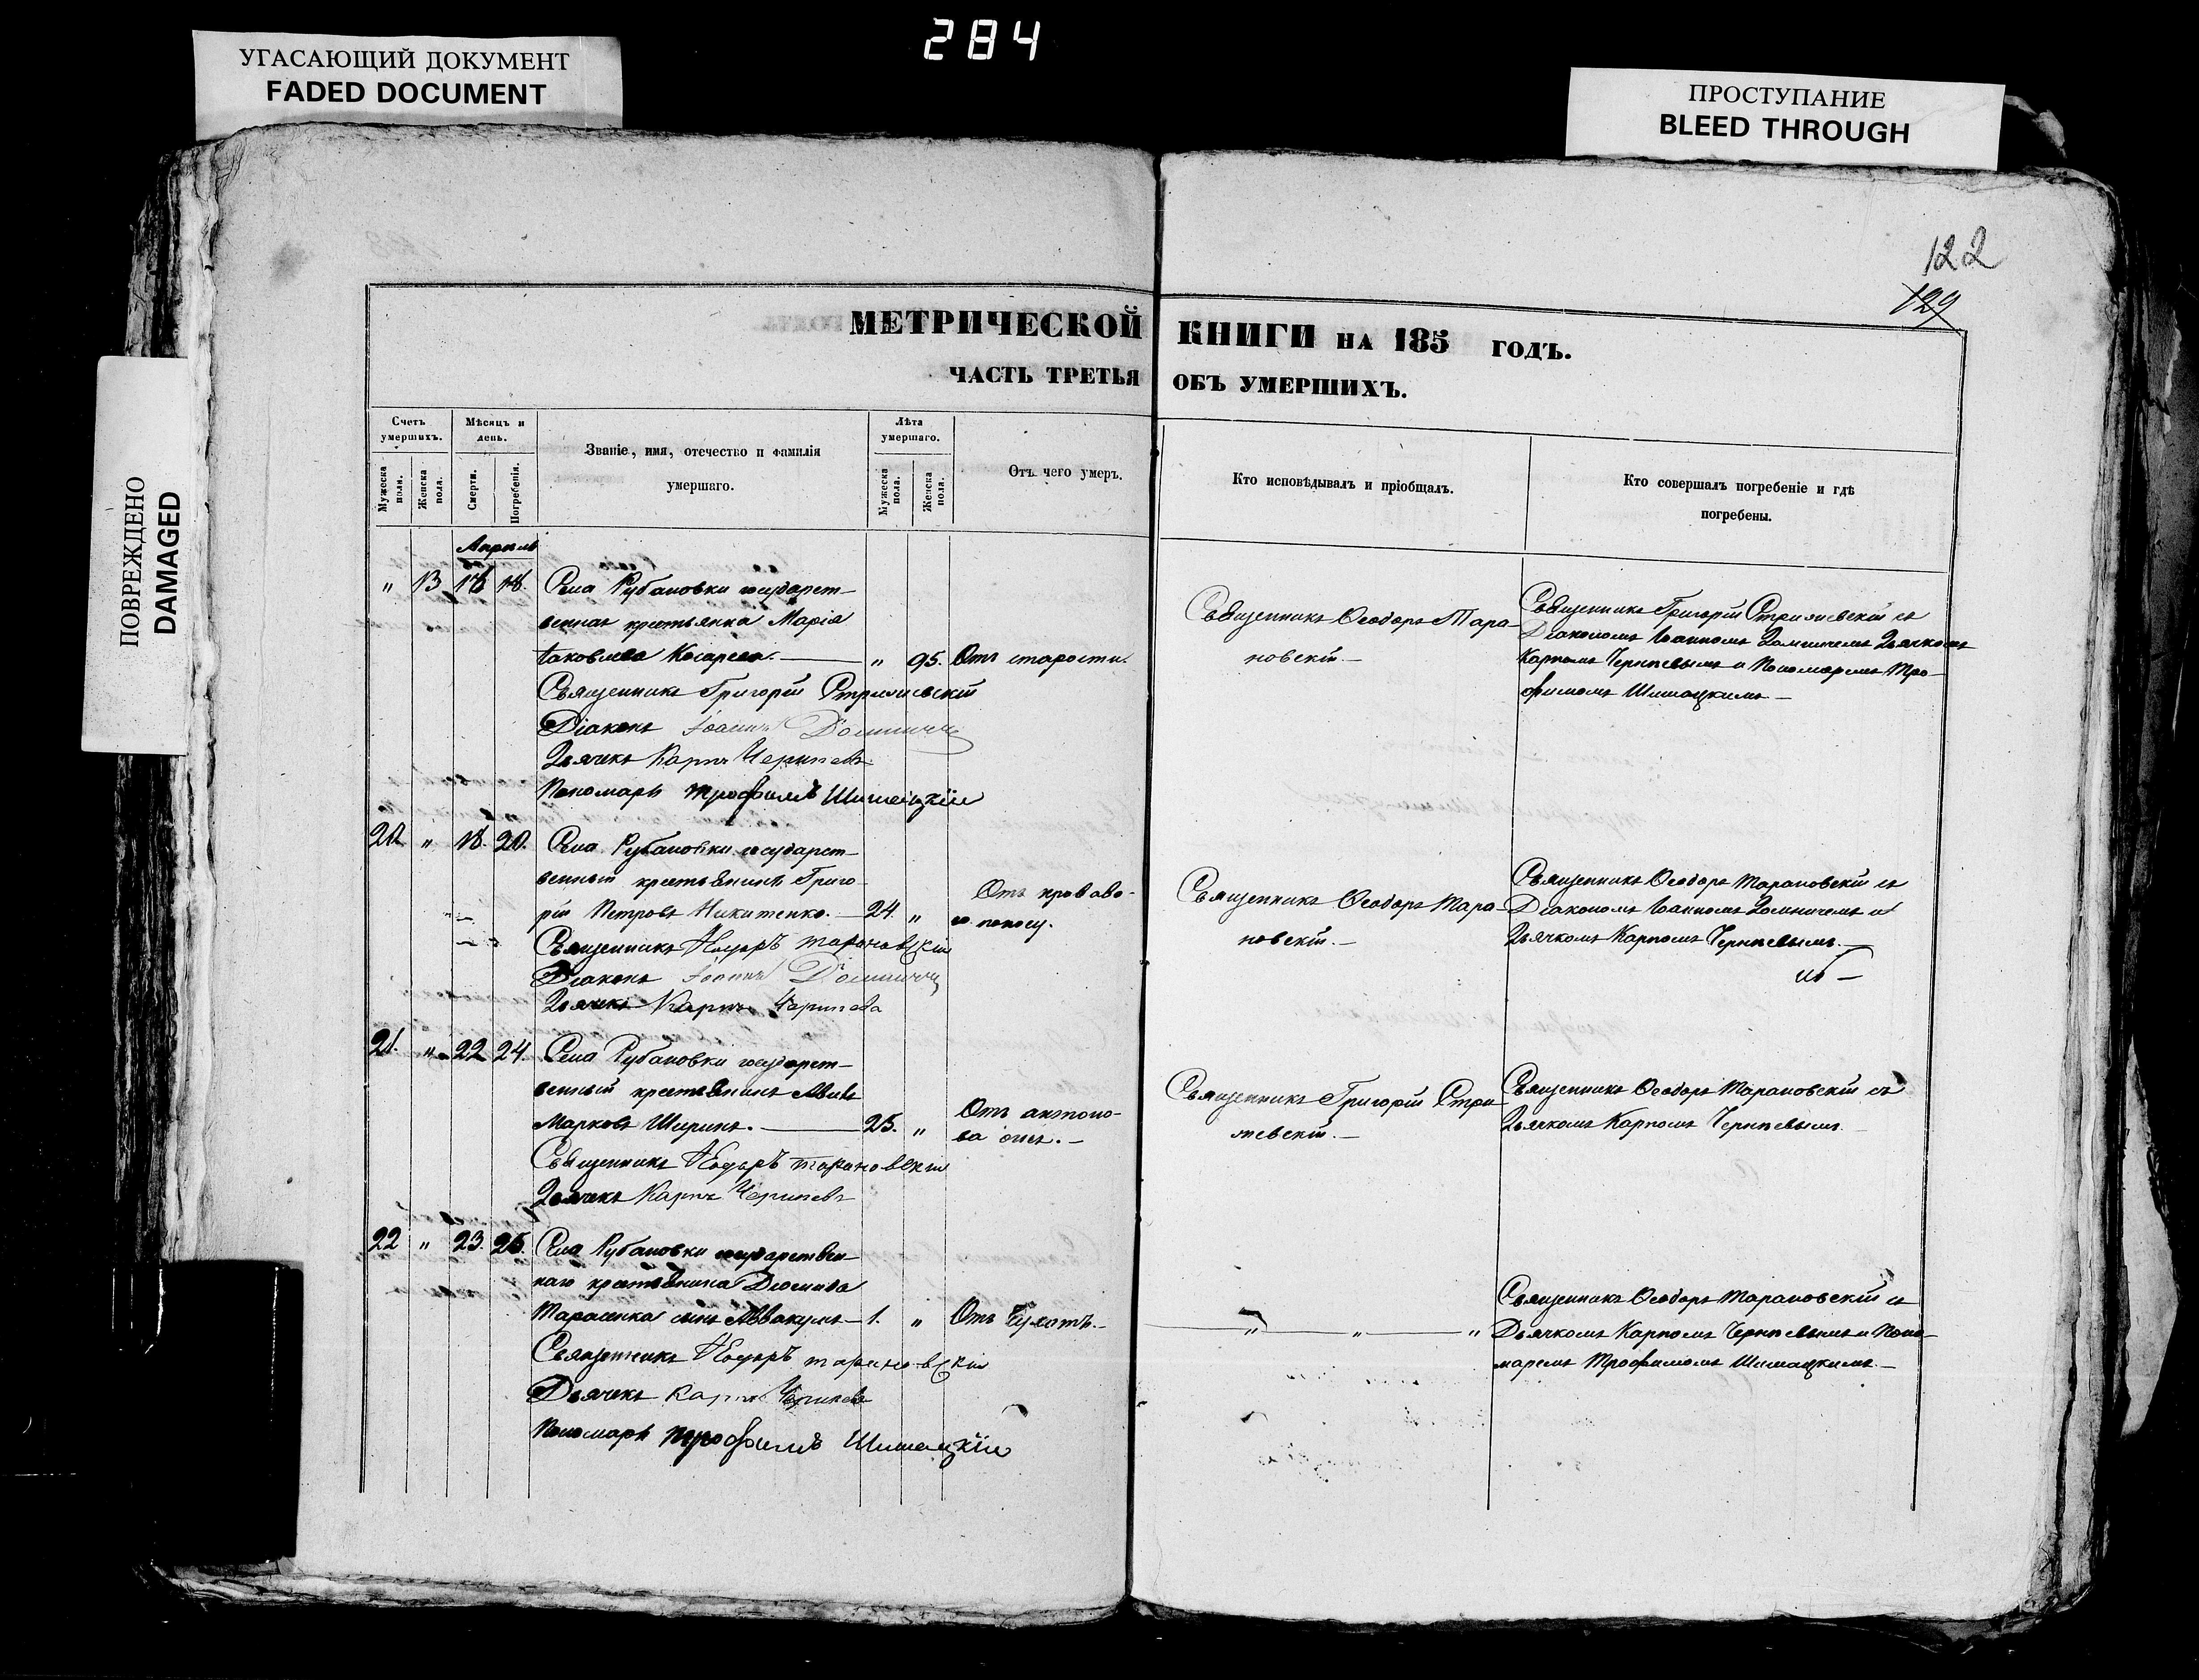 284
УГАСАЮЩИЙ ДОКУМЕНТ
FADED DOCUMENT
ПРОСТУПАНИЕ
BLEED THROUGH
ПОВРЕЖДЕНО
DAMAGED
122
129
МЕТРИЧЕСКОЙ КНИГИ НА 185 ГОДЪ.
ЧАСТЬ ТРЕТЬЯ ОБЪ УМЕРШИХЪ.
Счетъ умершихъ.
Мужеска пола.
Женска пола.
Мѣсяцъ и день.
Смерти.
Погребенія.
Званіе, имя, отечество и фамилія
умершаго.
Лѣта умершаго.
Мужеска пола.
Женска пола.
Отъ чего умеръ.
Кто исповѣдывалъ и пріобщалъ.
Кто совершалъ погребеніе и гдѣ
погребены.
Апрель
" 13 16 18. Села Рубановки государст-
венная крестьянка Марія
Іаковлева Косарева. — " 95. Отъ старости.
Священникъ Григорій Стрижевскій
Діаконъ Іоаннъ
Дьячекъ Карпъ Чернневъ
Пономарь Трофимъ Шишацкій
Священникъ Ѳеодоръ Тара-
новскій. —
Священникъ Григорій Стрижевскій съ
Діакономъ Іоанномъ Дьячкомъ
Карпомъ и Пономаремъ Тро-
фимомъ Шишацкимъ —
20. " 18. 20. Села Рубановки государст-
венный крестьянинъ Григо-
рій Петровъ Никитенко. — 24. " Отъ кроваво-
го поносу.
Священникъ Ѳеодоръ Тарановскій
Діаконъ Іоаннъ
Дьячекъ Карпъ
Священникъ Ѳеодоръ Тара-
новскій. —
Священникъ Ѳеодоръ Тарановскій съ
Діакономъ Іоанномъ и
Дьячкомъ Карпомъ
21. " 22 24. Села Рубановки государст-
венный крестьянинъ
Марковъ Ширинъ. — 25. " Отъ антоно-
ва огня. —
Священникъ Ѳеодоръ Тарановскій
Дьячекъ Карпъ
Священникъ Григорій Стри-
жевскій. —
Священникъ Ѳеодоръ Тарановскій съ
Дьячкомъ Карпомъ
22 " 23. 25. Села Рубановки государствен-
наго крестьянина Діомида
Тарасенка сынъ Аввакумъ — 1. " Отъ сухотъ. —
Священникъ Ѳеодоръ Тарановскій
Дьячекъ Карпъ
Пономарь Трофимъ Шишацкій
" — " — "
Священникъ Ѳеодоръ Тарановскій съ
Дьячкомъ Карпомъ и Поно-
маремъ Трофимомъ Шишацкимъ. —